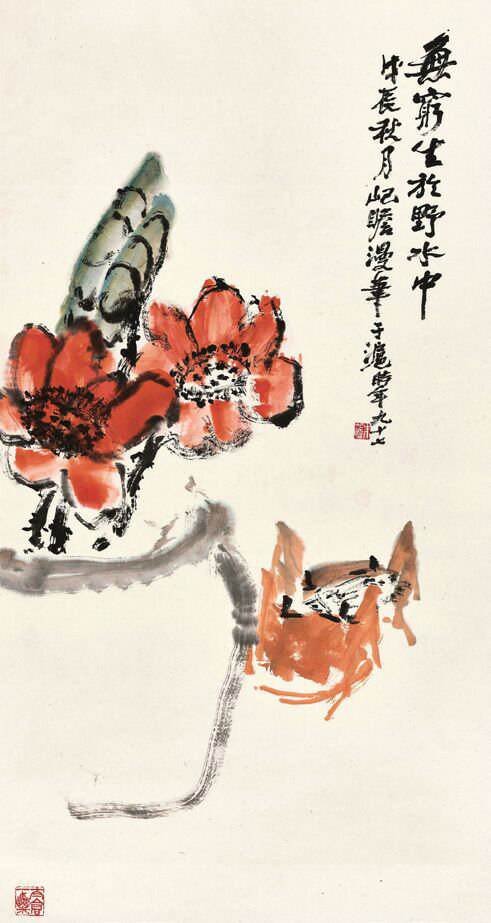 無窮生於野水中
戊辰秋月屺瞻漫筆于滬時年九十七
太倉一粟